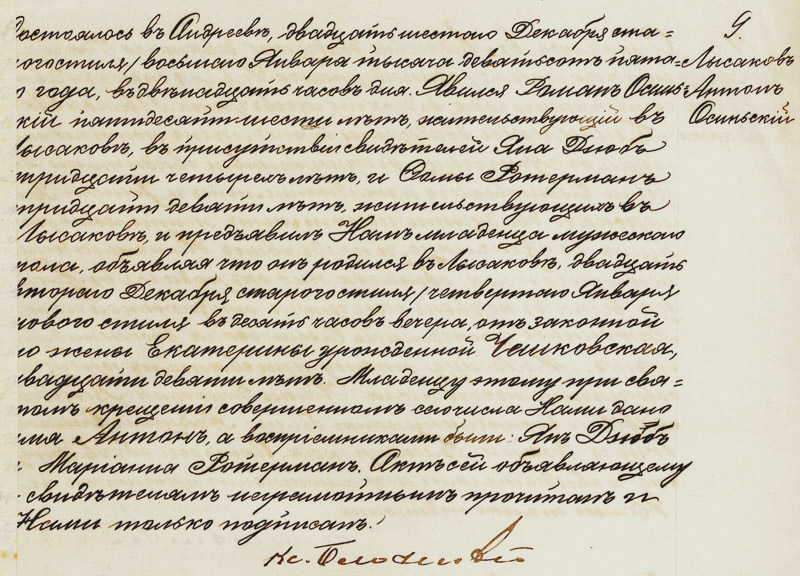 остоялось въ Андреевѣ, двадцать шестаго Декабря ста=
рогостиля/восьмаго Января тысяча девятьсотъ пята=
о года, въ двѣнадцать часовъ дня. Явился Романъ Осинь=
скій пятидесяти шести лѣтъ, жительствующій въ
Лысаковѣ, въ присутствіи свидѣтелей Яна Дзюбъ
тридцати четырехъ лѣтъ, и Ротерманъ
тридцати девяти лѣтъ, жительствующихъ въ
Лысаковѣ, и предъявилъ Намъ младенца мужескаго
пола, объявляя что онъ родился въ Лысаковѣ, двадцать
втораго Декабря старогостиля/четвертаго Января
новаго стиля въ десять часовъ вечера, отъ законной
го жены Екатерины урожденной Чашковская,
двадцати девяти лѣтъ. Младенцу этому при свя=
томъ крещеніи совершенномъ сегочисла Нами дано
имя Антонъ, а воспріемниками были: Янъ Дзюбъ
и Маріанна Ротерманъ. Актъ сей объявляющему
и свидѣтелямъ неграмотнымъ прочитанъ и
Нами только подписанъ.
Кс.
9.
Лысаковъ
Антонъ
Осиньскій